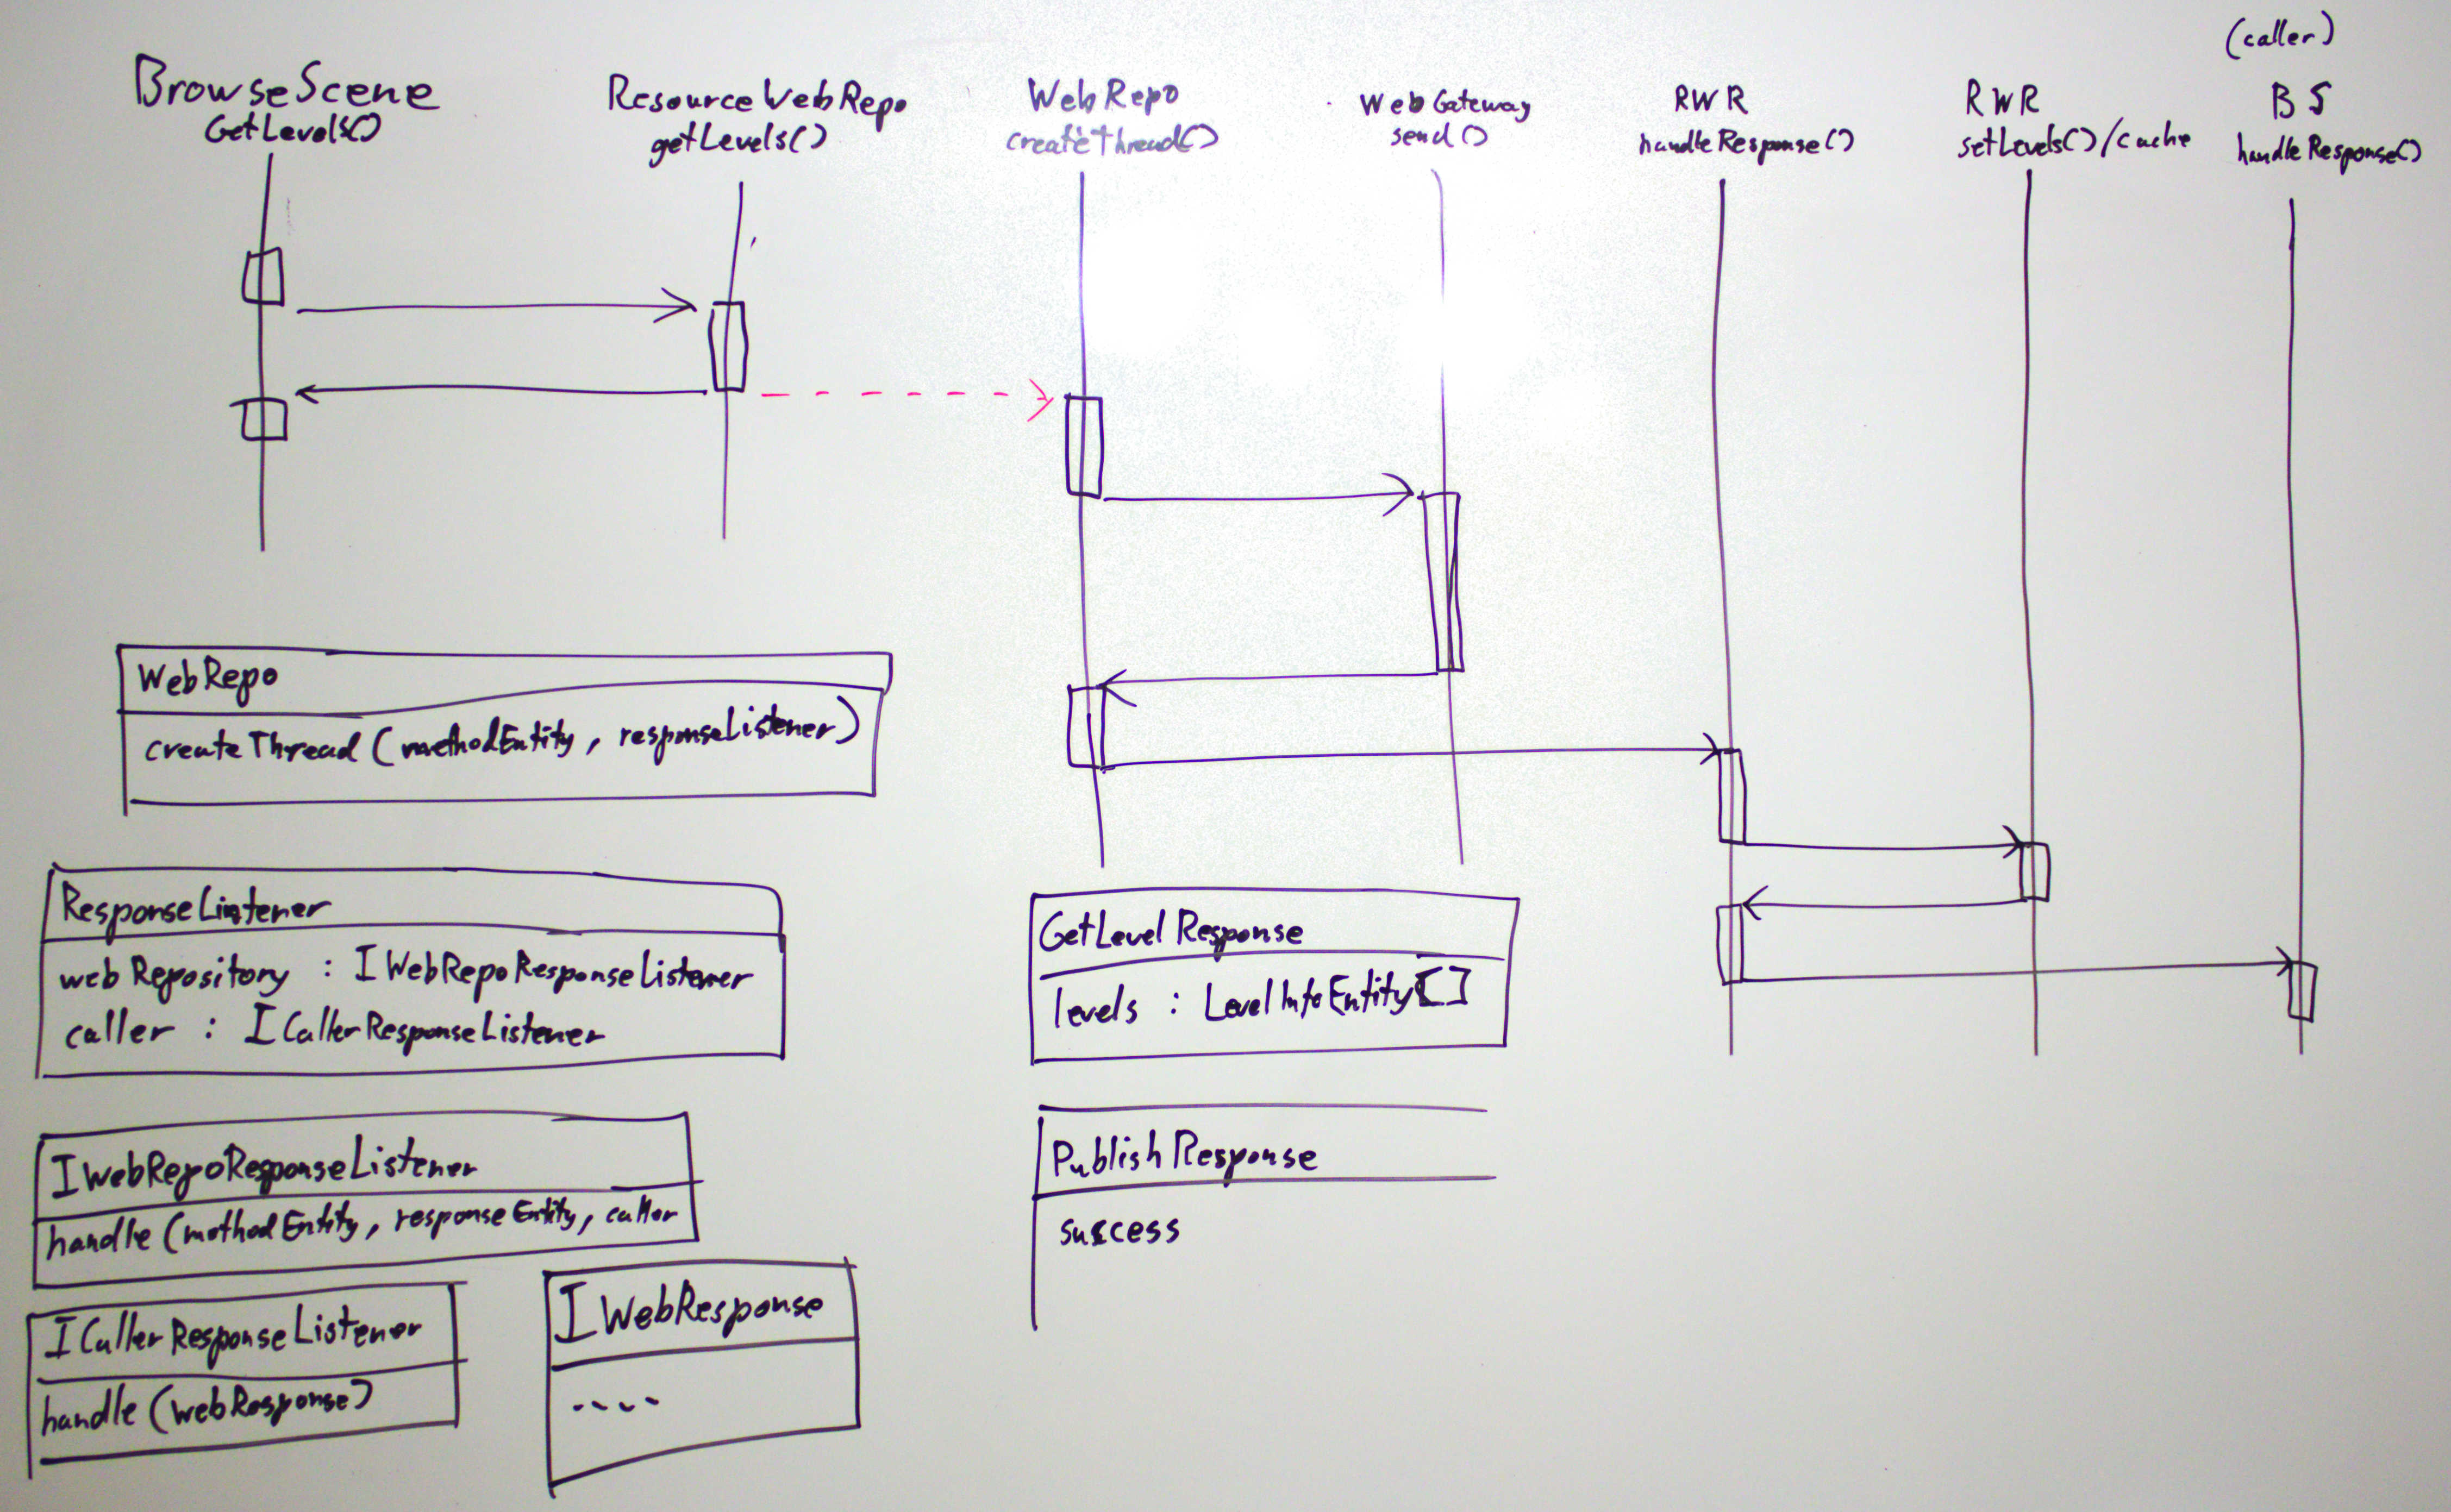 (caller)
BrowseScene
GetLevels()
ResourceWebRepo
getLevels()
WebRepo
createThread()
WebGateway
send()
RWR
handleResponse()
RWR
setLevels()/cache
BS
handleResponse()
WebRepo
createThread(methodEntity, responseListener)
ResponseListener
webRepository : IWebRepoResponseListener
caller : ICallerResponseListener
IWebRepoResponseListener
handle(methodEntity, responseEntity, caller
ICallerResponseListener
handle(webResponse)
IWebResponse
....
GetLevelResponse
levels : LevelInfoEntity[]
PublishResponse
success